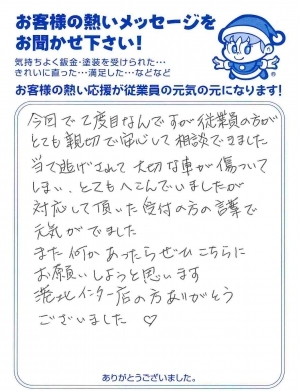 お客様の熱いメッセージを
お聞かせ下さい!
気持ちよく鈑金・塗装を受けられた…
きれいに直った…満足した…などなど
お客様の熱い応援が従業員の元気の元になります!
今回で2度目なんですが従業員の方が
とても親切で安心して相談できました
当て逃げされて大切な車が傷ついて
しまい、とてもへこんでいましたが
対応して頂いた受付の方の言葉で
元気がでました
また何かあったらぜひこちらに
お願いしようと思います
港北インター店の方ありがとう
ございました ♡
ありがとうございました。